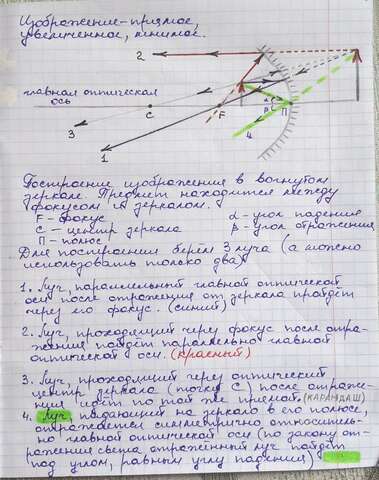 Изображение - прямое,
увеличенное, мнимое.
2
главная оптическая
ось
C
F
П
α
β
3
4
1
Построение изображения в вогнутом
зеркале. Предмет находится между
фокусом и зеркалом.
F - фокус
α - угол падения
C - центр зеркала
β - угол отражения
П - полюс
Для построения берём 3 луча (а можно
использовать только два)
1. Луч, параллельный главной оптической
оси после отражения от зеркала пройдёт
через его фокус. (синий)
2. Луч, проходящий через фокус после отра-
жения пойдёт параллельно главной
оптической оси. (красный)
3. Луч, проходящий через оптический
центр зеркала (точку C) после отраже-
ния идёт по той же прямой. (КАРАНДАШ)
4. Луч, падающий на зеркало в его полюсе,
отражается симметрично относитель-
но главной оптической оси (по закону от-
ражения света отражённый луч пойдёт
под углом, равным углу падения)